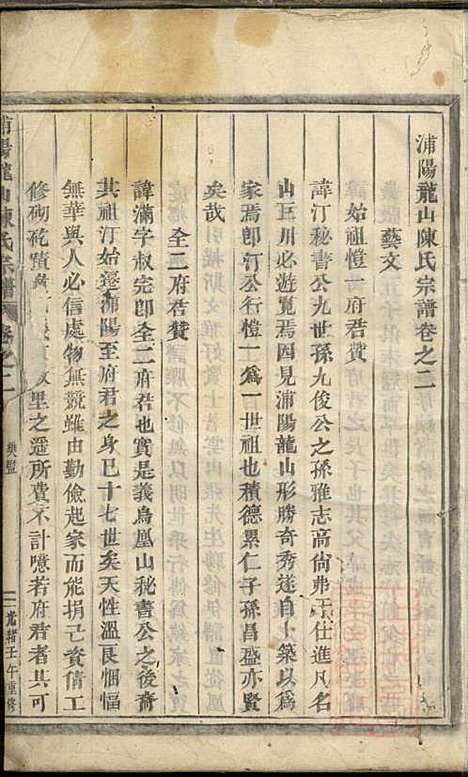 浦陽龍山陳氏宗譜卷之二
藝文
始祖愷一府君贊
諱汀秘書公九世孫九俊公之孫雅志高尚弗干仕進凡名
山五川必遊覽焉因見浦陽龍山形勝奇秀遂自卜築以爲
家焉卽汀公行愷一爲一世祖也積德累仁子孫昌盛亦賢
矣哉
全二府君贊
諱滿字叔完卽全二府君也實是義烏凰山秘書公之後裔
其祖汀始遷浦陽至府君之身已十七世矣天性溫良悃愊
無華與人必信處物無競雖由勤儉起家而能捐己資倩工
修砌砣磧里之遥所費不計噫若府君者其可
浦陽龍山陳氏宗譜 卷之二 樊盤 一 光緒壬午重修